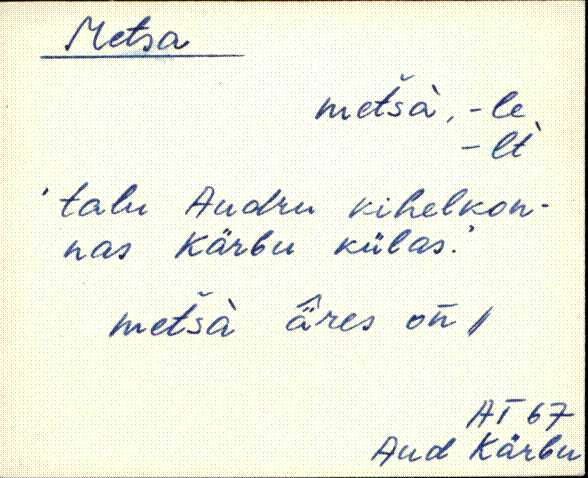 Metsa
metšà, -le
-lt̀
'talu Audru kihelkon-
nas Kärbu külas.'
metšà ä̂res on̄ //
AT 67
Aud Kärbu